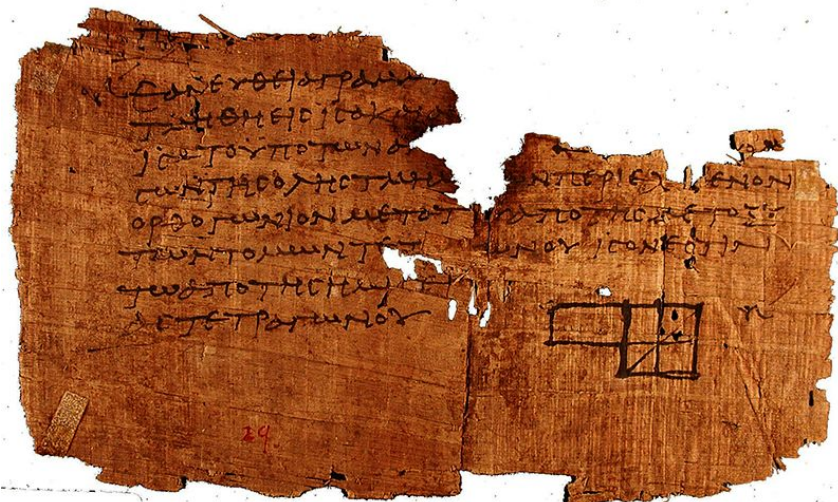 ΕΑΝΕΥΘΕΙΑΓΡΑΜΜ
ΤΜΗΘΗΕΙϹΙϹΑΚΑΙ
ΙϹΑΤΟΥΠΟΤΩΝΑ
ϹΩΝΤΗϹΟΛΗϹΤΜΗΜ ΩΝΠΕΡΙΕΧΟΜΕΝΟΝ
ΟΡΘΟΓΩΝΙΟΝΜΕΤΑΤ ΑΠΟΤΗϹΜΕΤΟΞΥ
ΤΩΝΤΟΜΩΝΤΕΤ ΩΝΟΥΙϹΟΝΕϹΤΙΝ
ΤΩΑΠΟΤΗϹΗΜΙϹ
ΑϹΤΕΤΡΑΓΩΝΟΥ
29.